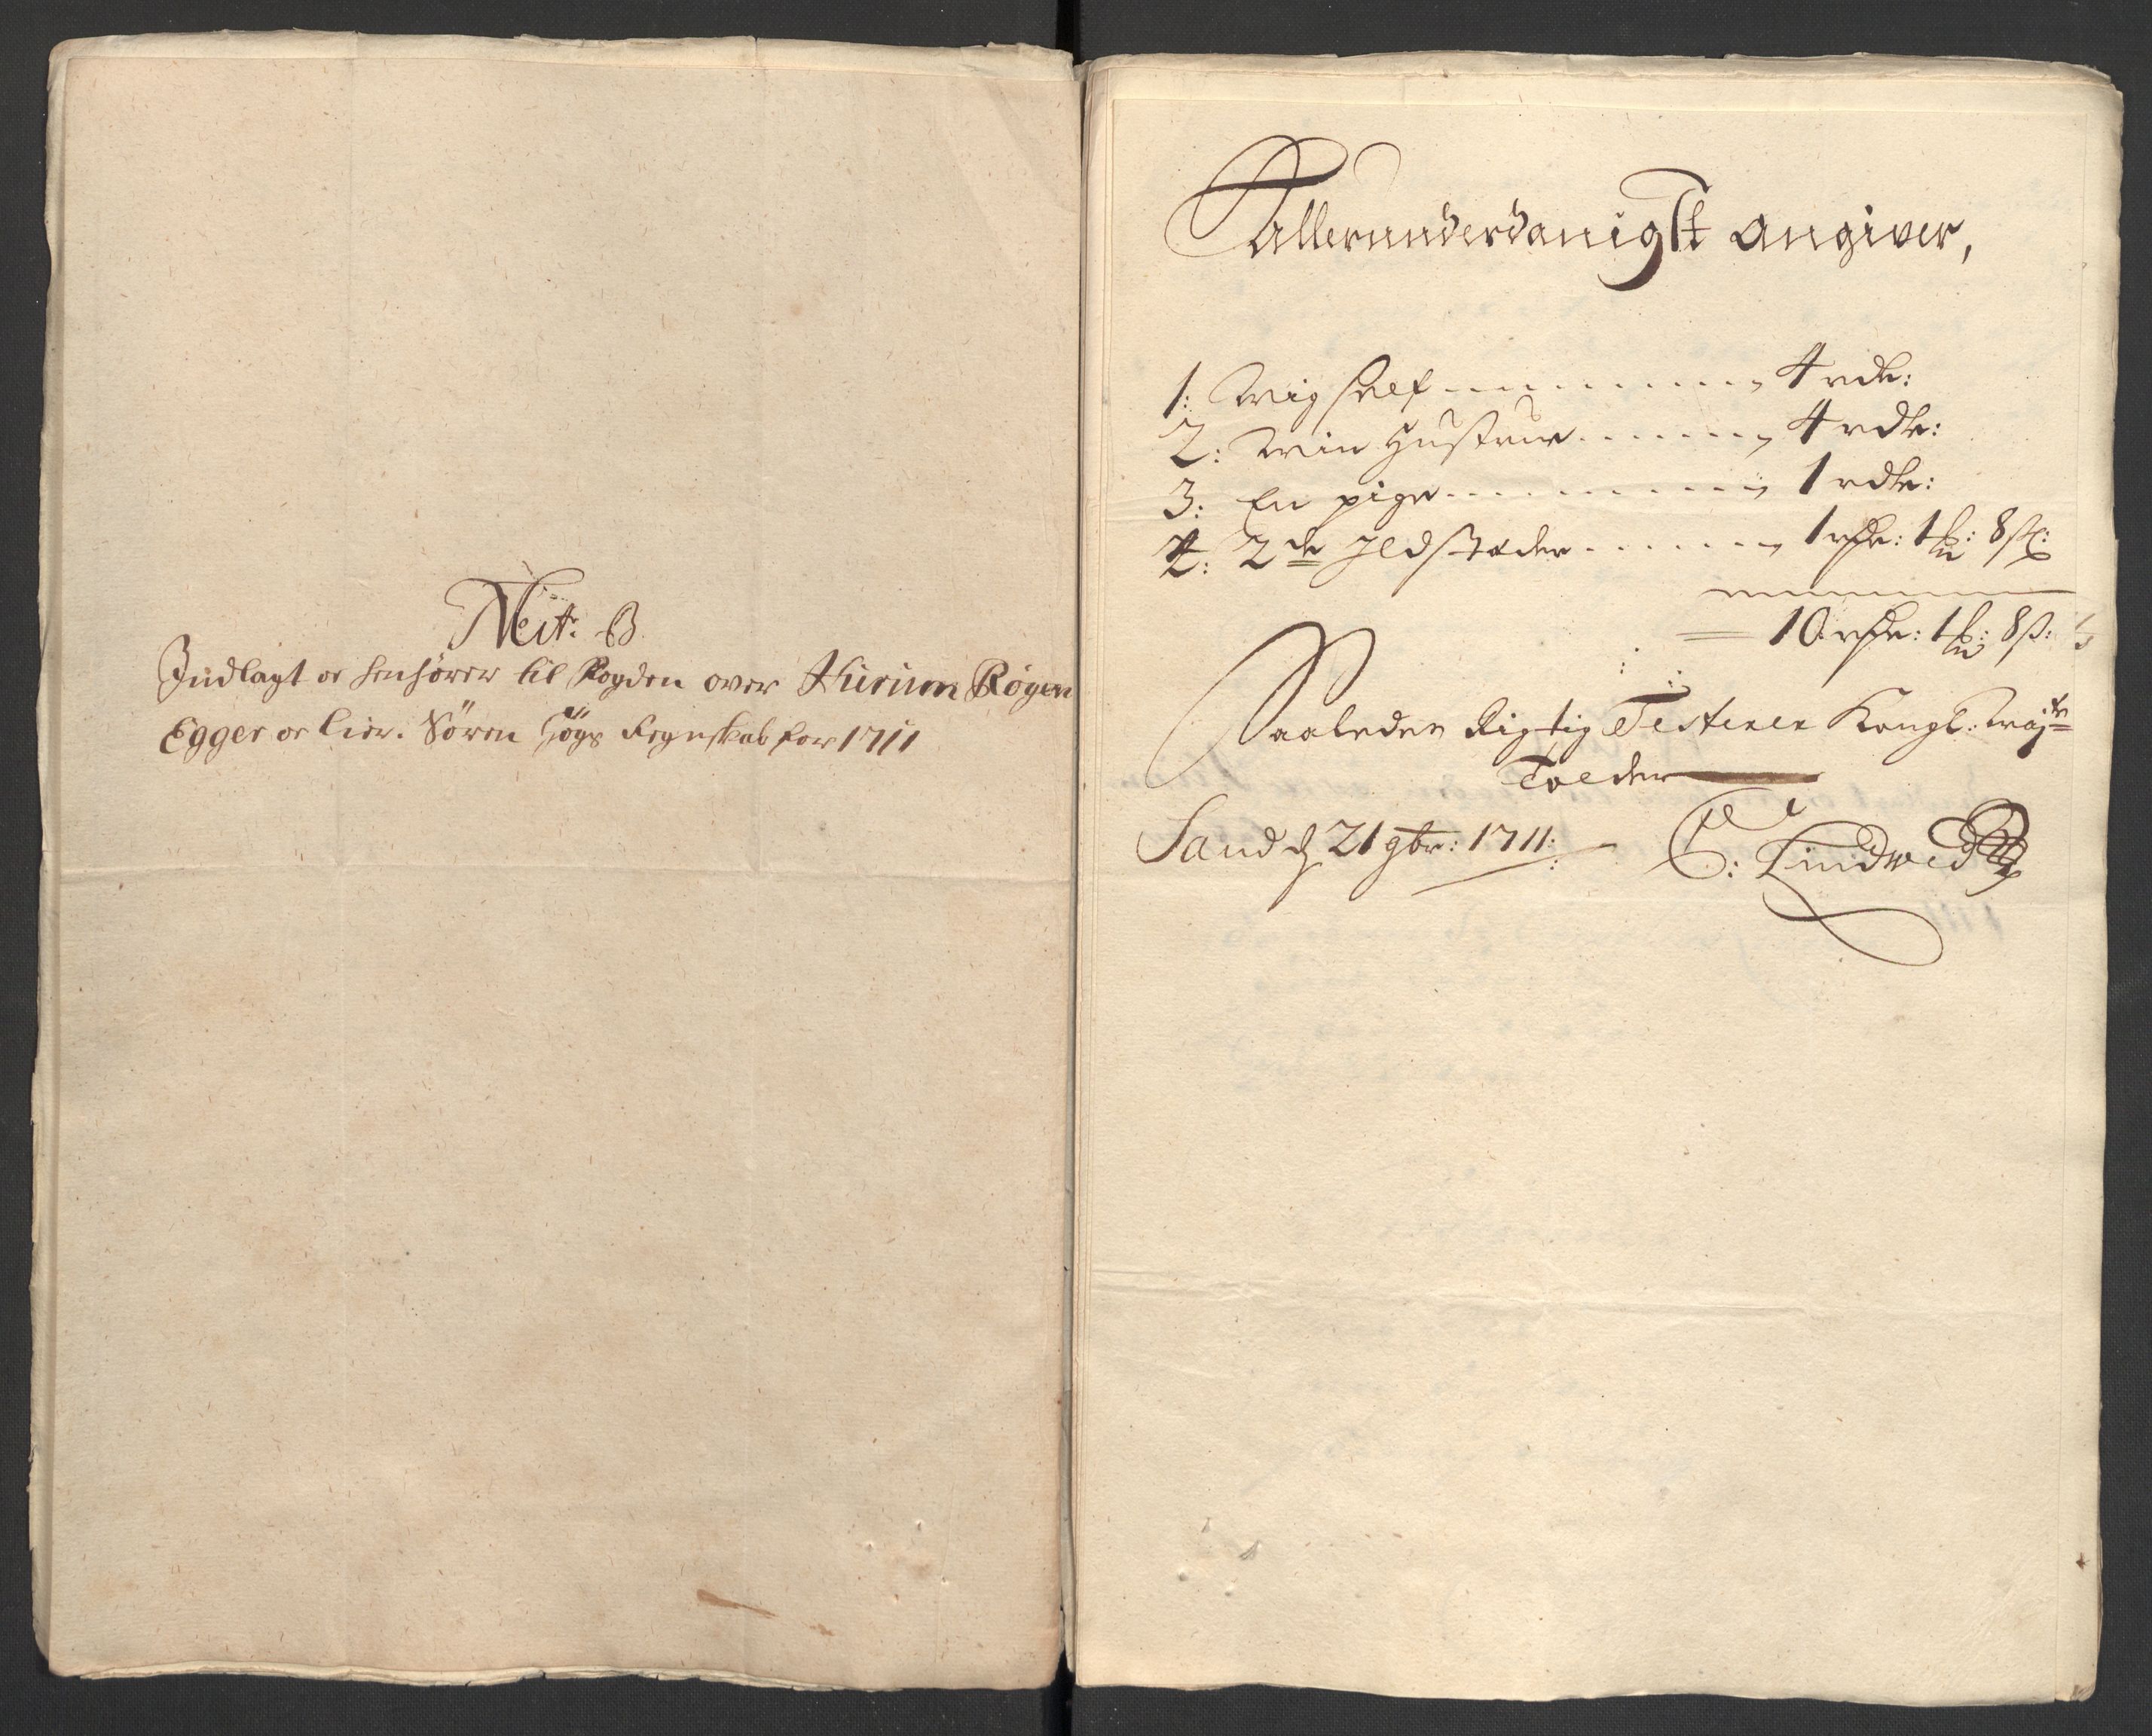 Lit: B
Indlagt oc henhører til fogden over Hurum Røgen
Egger oc Lier. Søren Høgs Regnskab for 1711
Allerunderdanigst angiver,
1: Mig Self - - - - - 4 rdr:
2: Min Hustrue - - - - - 4 rdr:
3: En pige - - - - - 1 rdr:
4: 2de Ildstæder - - - - - 1 rdr: 1 ℔: 8 ß:
10 rdr: 1 ℔: 8 ß:
Saaledes Rigtig Testerer Kongl: Maj:ts
Tolder
Sand d 21 9br: 1711:
C: Lindved